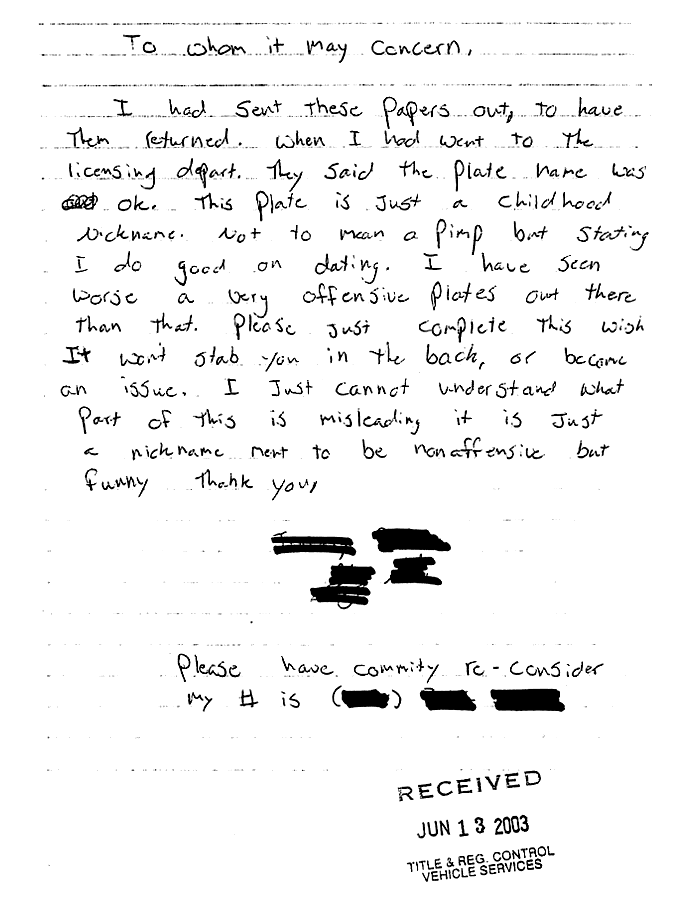 To whom it may concern,
I had sent these papers out, to have
them returned. when I had went to the
licensing depart. They said the plate name was
ok. This plate is just a childhood
nickname. Not to mean a pimp but stating
I do good on dating. I have seen
worse a very offensive plates out there
than that. Please just complete this wish
It won't stab you in the back, or become
an issue. I Just cannot understand what
part of this is misleading it is just
a nickname ment to be nonaffensive but
funny Thank you,
Please have commity re-consider
my # is ( )
RECEIVED
JUN 13 2003
TITLE & REG. CONTROL
VEHICLE SERVICES